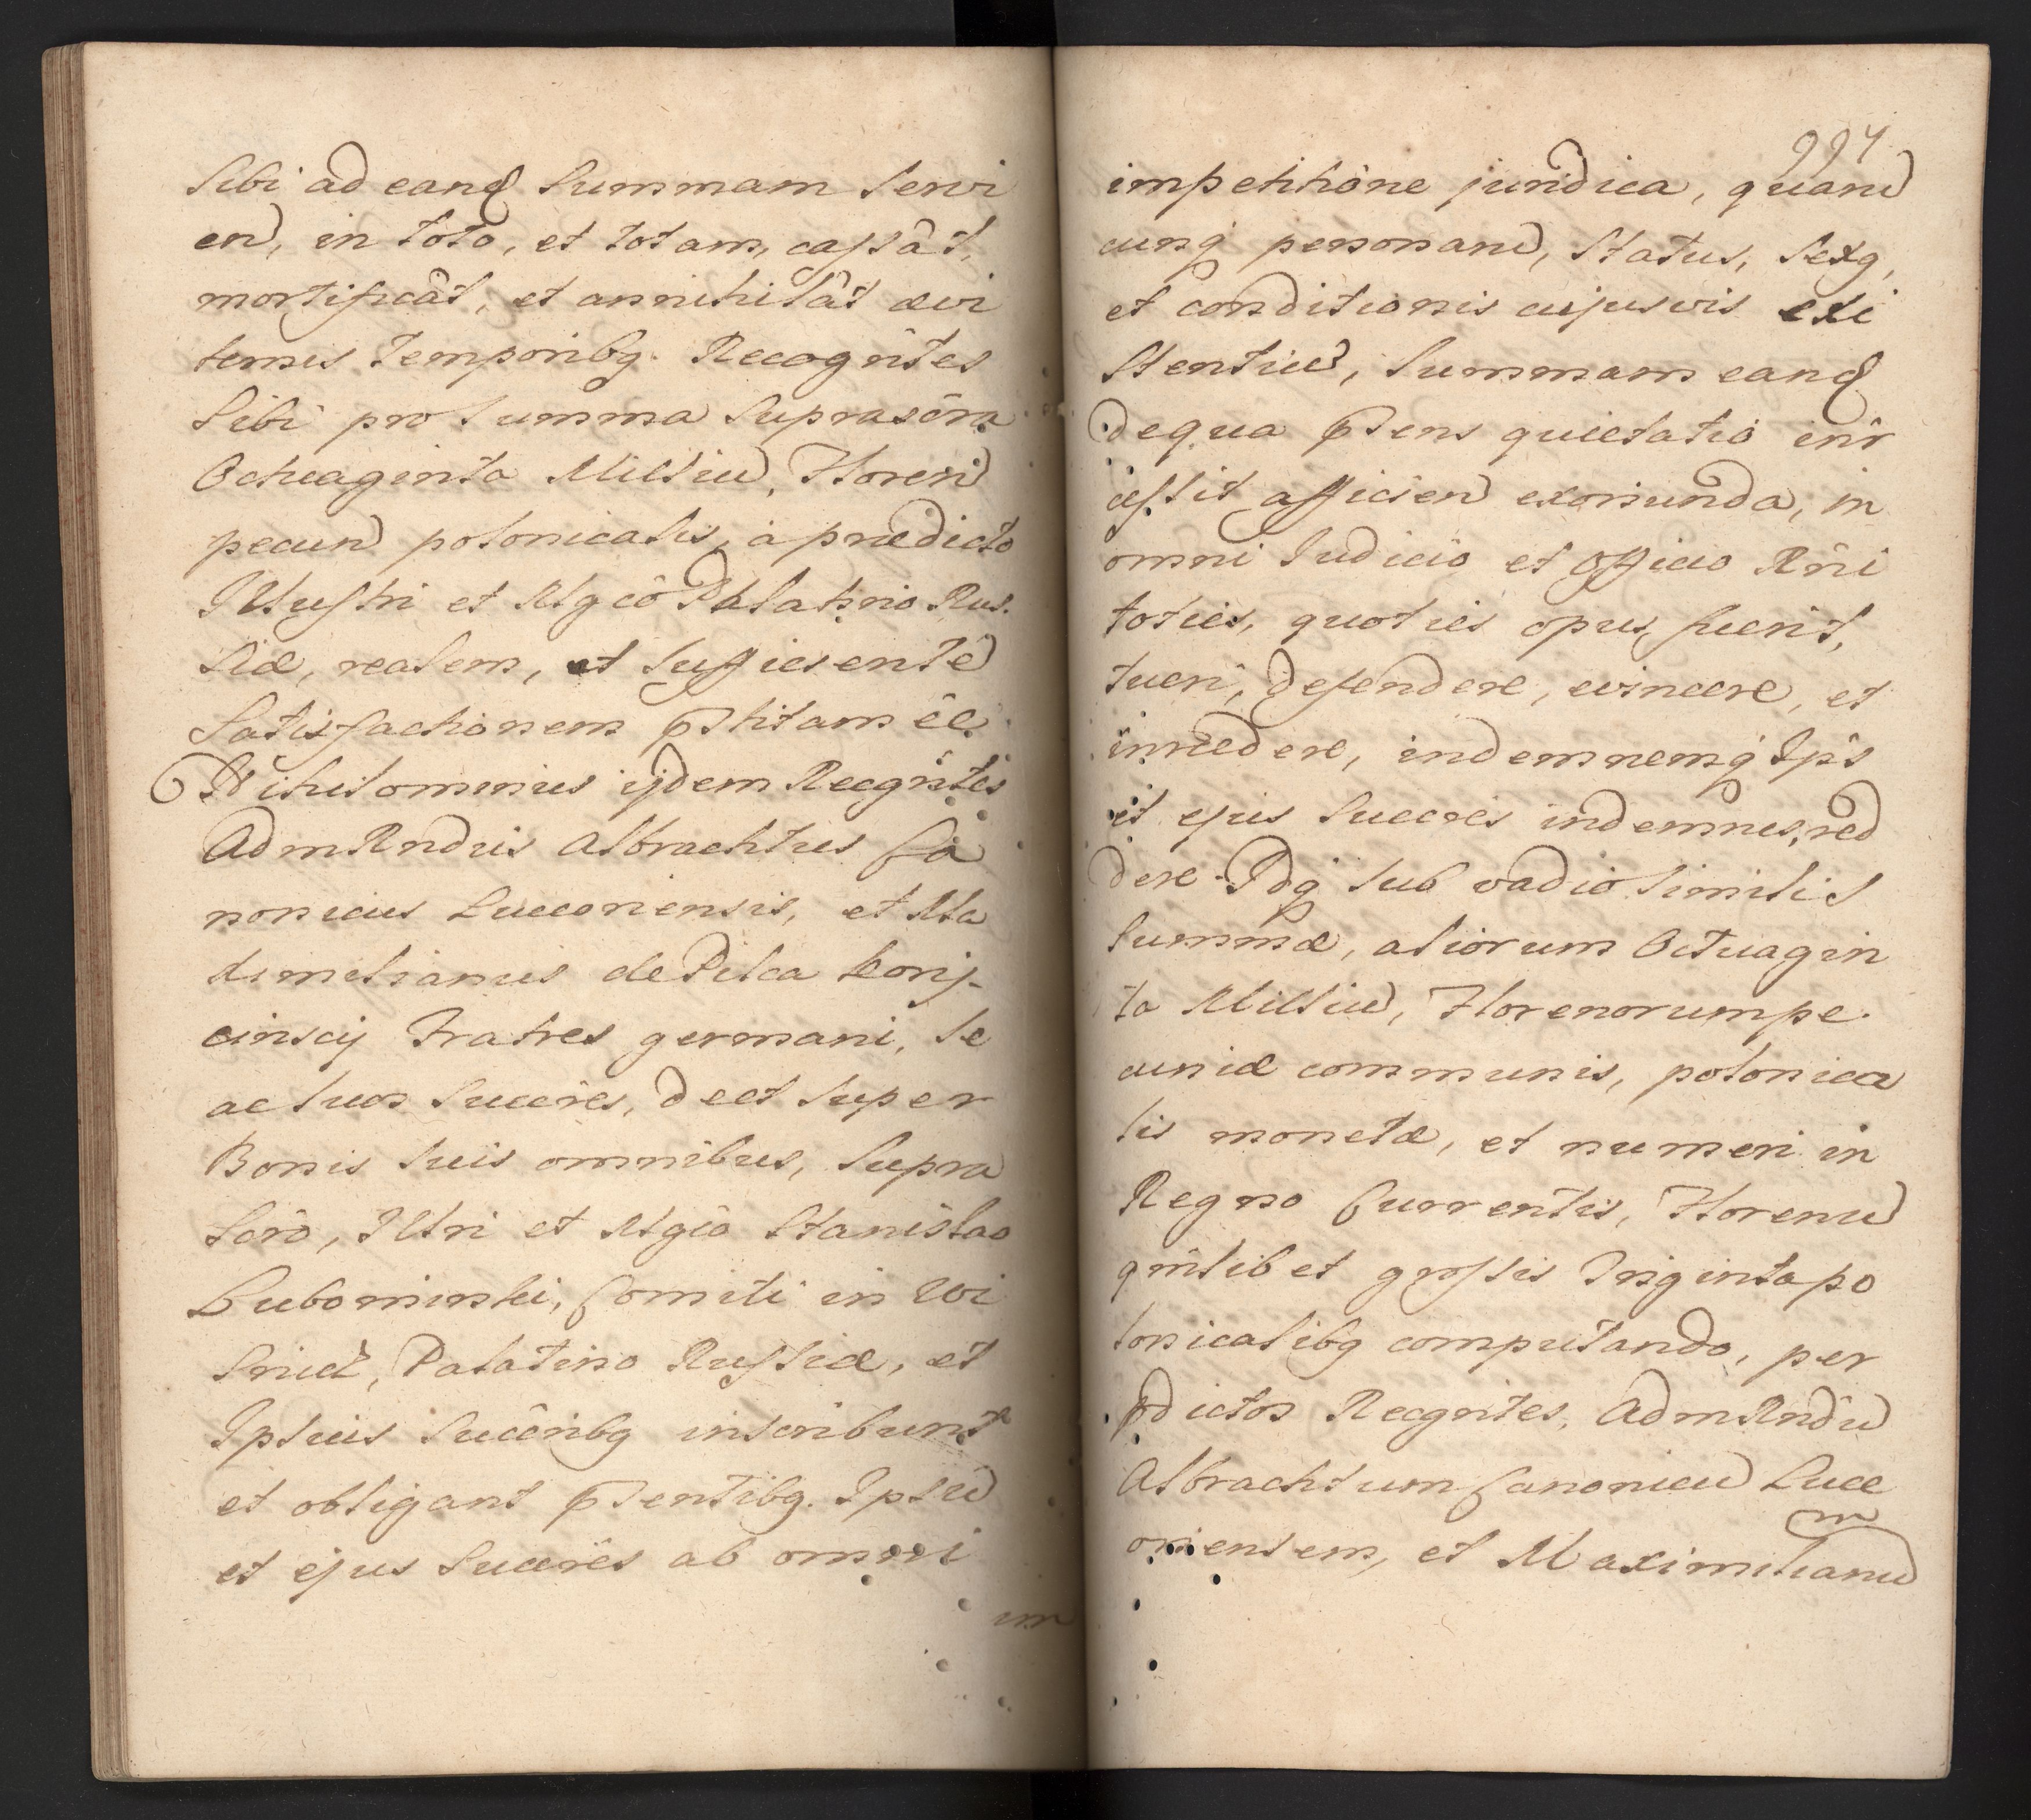 Sibi ad eand Summam Servi
en, in toto, et totam, cassât,
mortificât, et annihilât ævi
ternis Temporibq. Recognŝtes
Sibi pro Summa Suprascŝra
Octuaginta Milliũ, Floren
pecun polonicalis, à prædicto
Illustri et Mgcô Palatino Rus.
siæ, realem, et Sufficientẽ
Satisfactionem pstitam êe
Nihilominus ijdem Recgnŝtes
AdmRndus Albrachtus Ca
nonicus Lucconiensis, et Ma
ximilianus de Pilca Korij.
cinscij Fratres germani, Se
ac suos Succŝres, de et Super
Bonis suis omnibus, Supra
Scrô, Illri et Mgcô Stanislao
Lubomirski, Comiti in Wi
snicz, Palatino Russiæ, et
Ipsius Succŝribq inscribunt
et obligant psentibq. Ipsũ
et ejus Succŝres ab omni
im
994
impetitiône juridica, quarũ
cunq personarũ, Status, Sexq,
et conditionis cujusvis exi
stentiũ, Summam eand
de qua psens quietatio inr
cessit afficien exoriunda, in
omni Iudicio et Officio Rñi
toties, quoties opus fuerit,
tueri, defendere, evincere, et
inrcedere, indemnemq Ips
et ejus Succŝres indemnes, red
dere. Idq sub vadio Similis
Summæ, aliorum Octuagin
ta Milliũ, Florenorum pe.
cuniæ communis, polonica
lis monetæ, et numeri in
Regno Currentis, Florenũ
qmlibet grossis Triginta po
lonicalibq computando, per
pdictos Recgnŝtes, AdmRndũ
Albrachtum Canonicũ Lucc
oriensem, et Maximilianũ
m